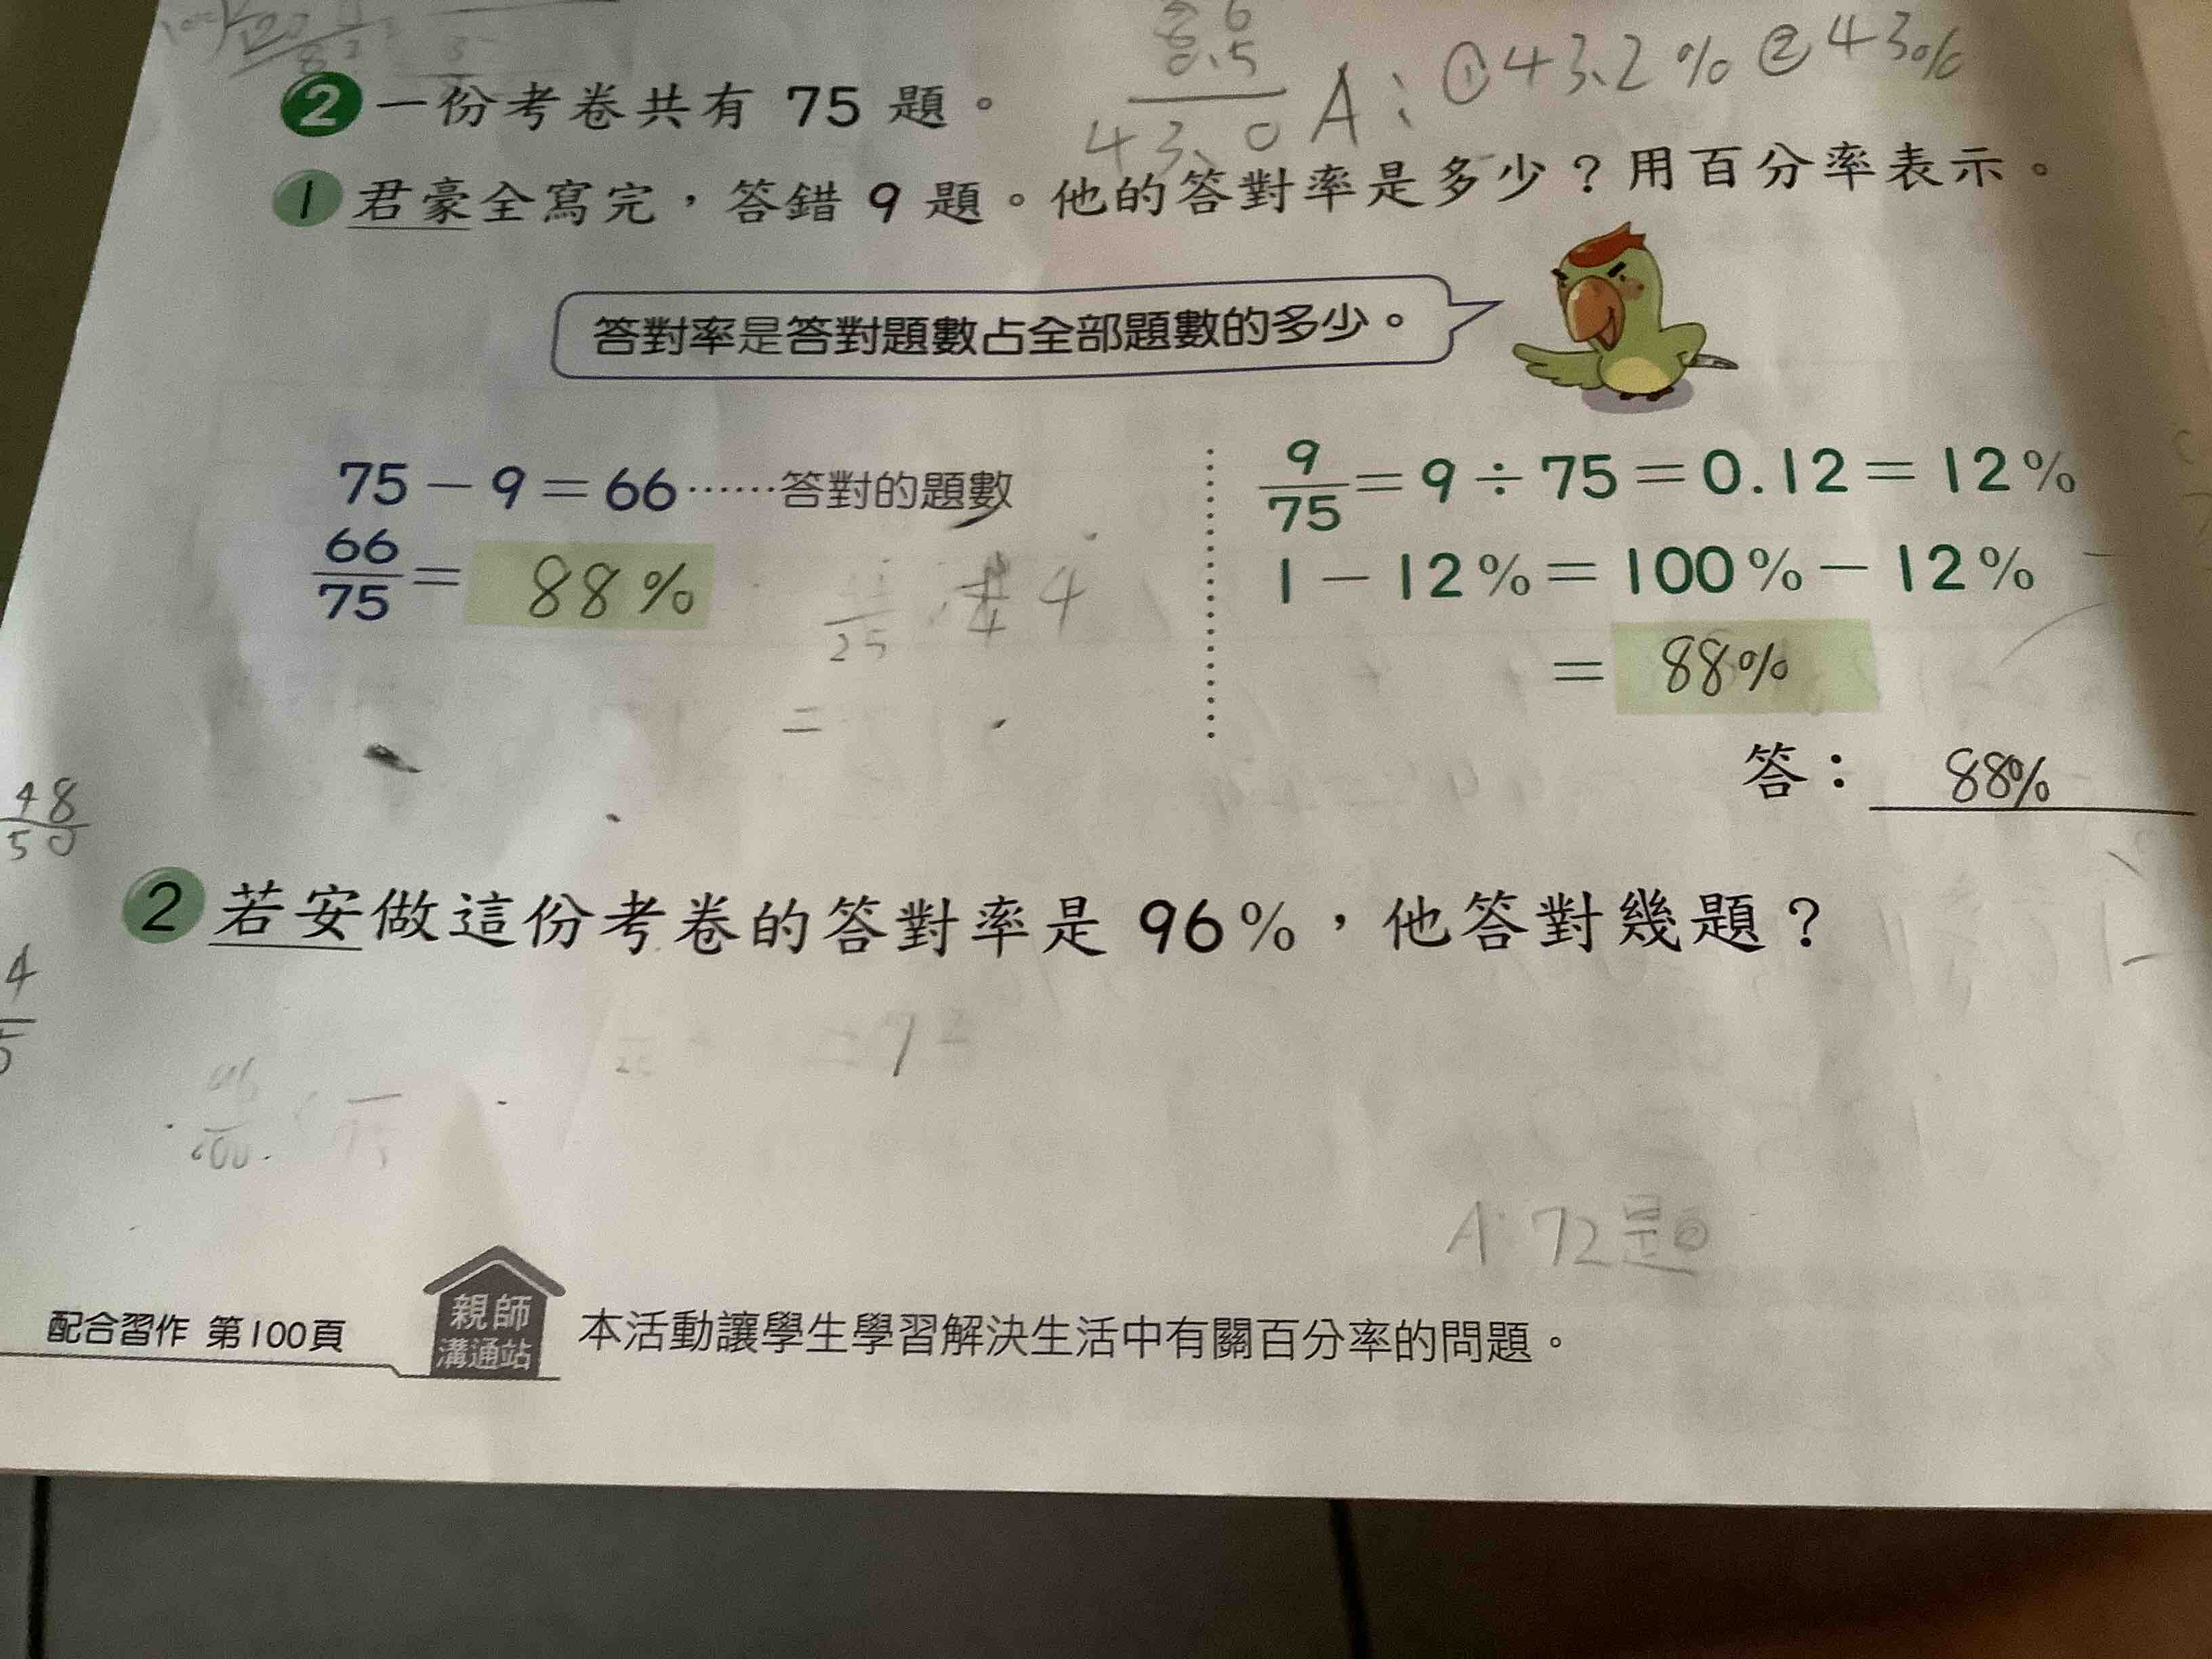 8.6
0.5
43.0
A: ①43.2% ②43%
2 一份考卷共有 75 題。
1 君豪全寫完，答錯 9 題。他的答對率是多少？用百分率表示。
答對率是答對題數占全部題數的多少。
75－9＝66……答對的題數
66/75＝ 88%
9/75＝9÷75＝0.12＝12%
1－12%＝100%－12%
＝ 88%
答： 88%
48/50
4/5
2 若安做這份考卷的答對率是 96%，他答對幾題？
A: 72題
配合習作 第100頁
親師
溝通站
本活動讓學生學習解決生活中有關百分率的問題。